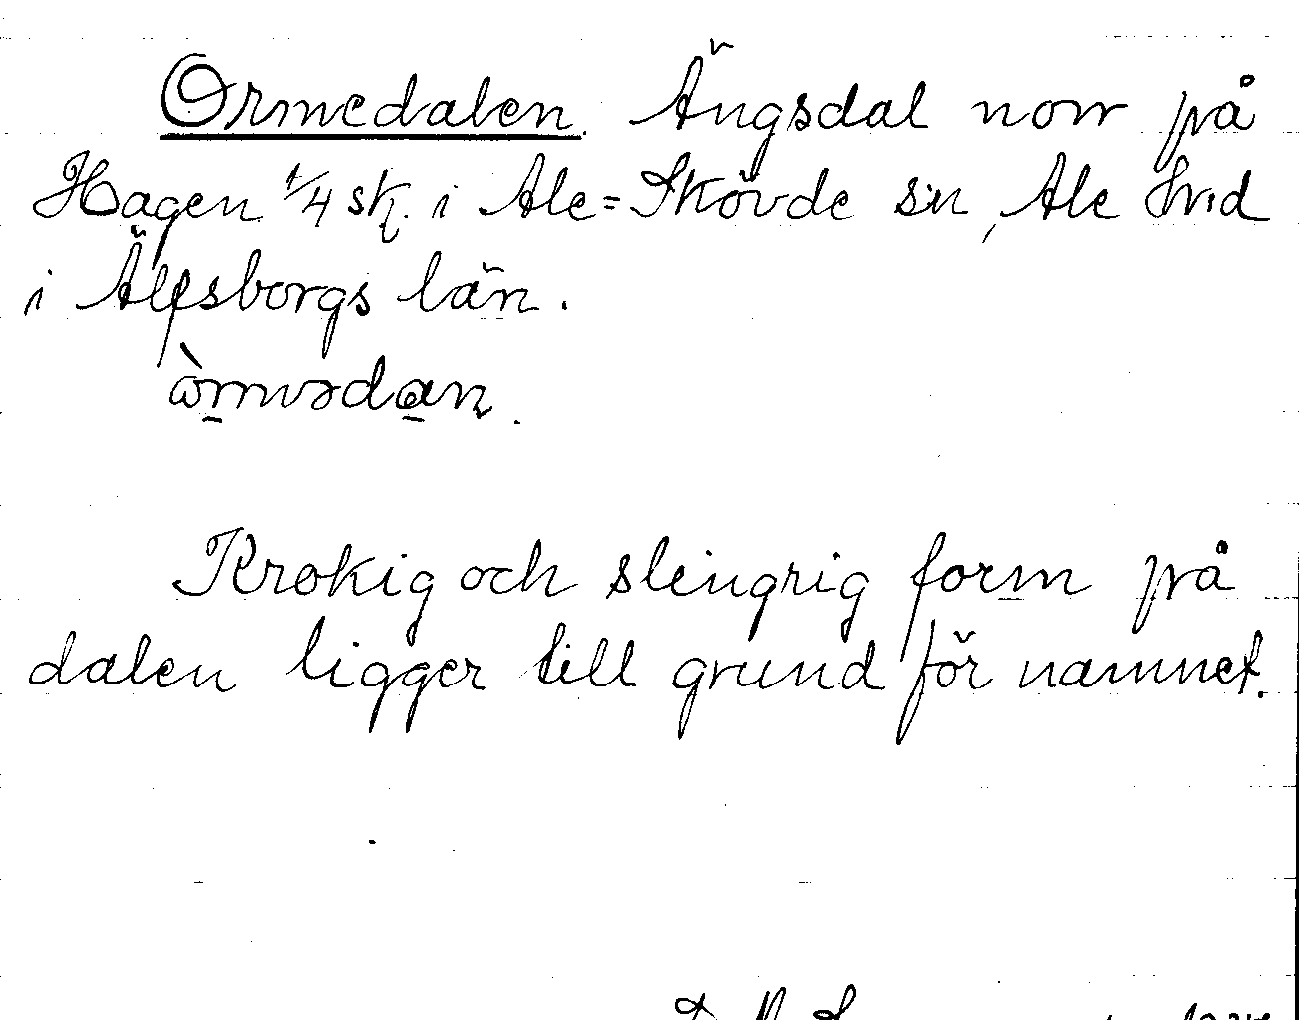 Ormedalen. Ängsdal norr på
Hagen 1/4 sk. i Ale=Skövde sn, Ale hrd
i Älfsborgs län.
Krokig och slingrig form på
dalen ligger till grund för namnet.